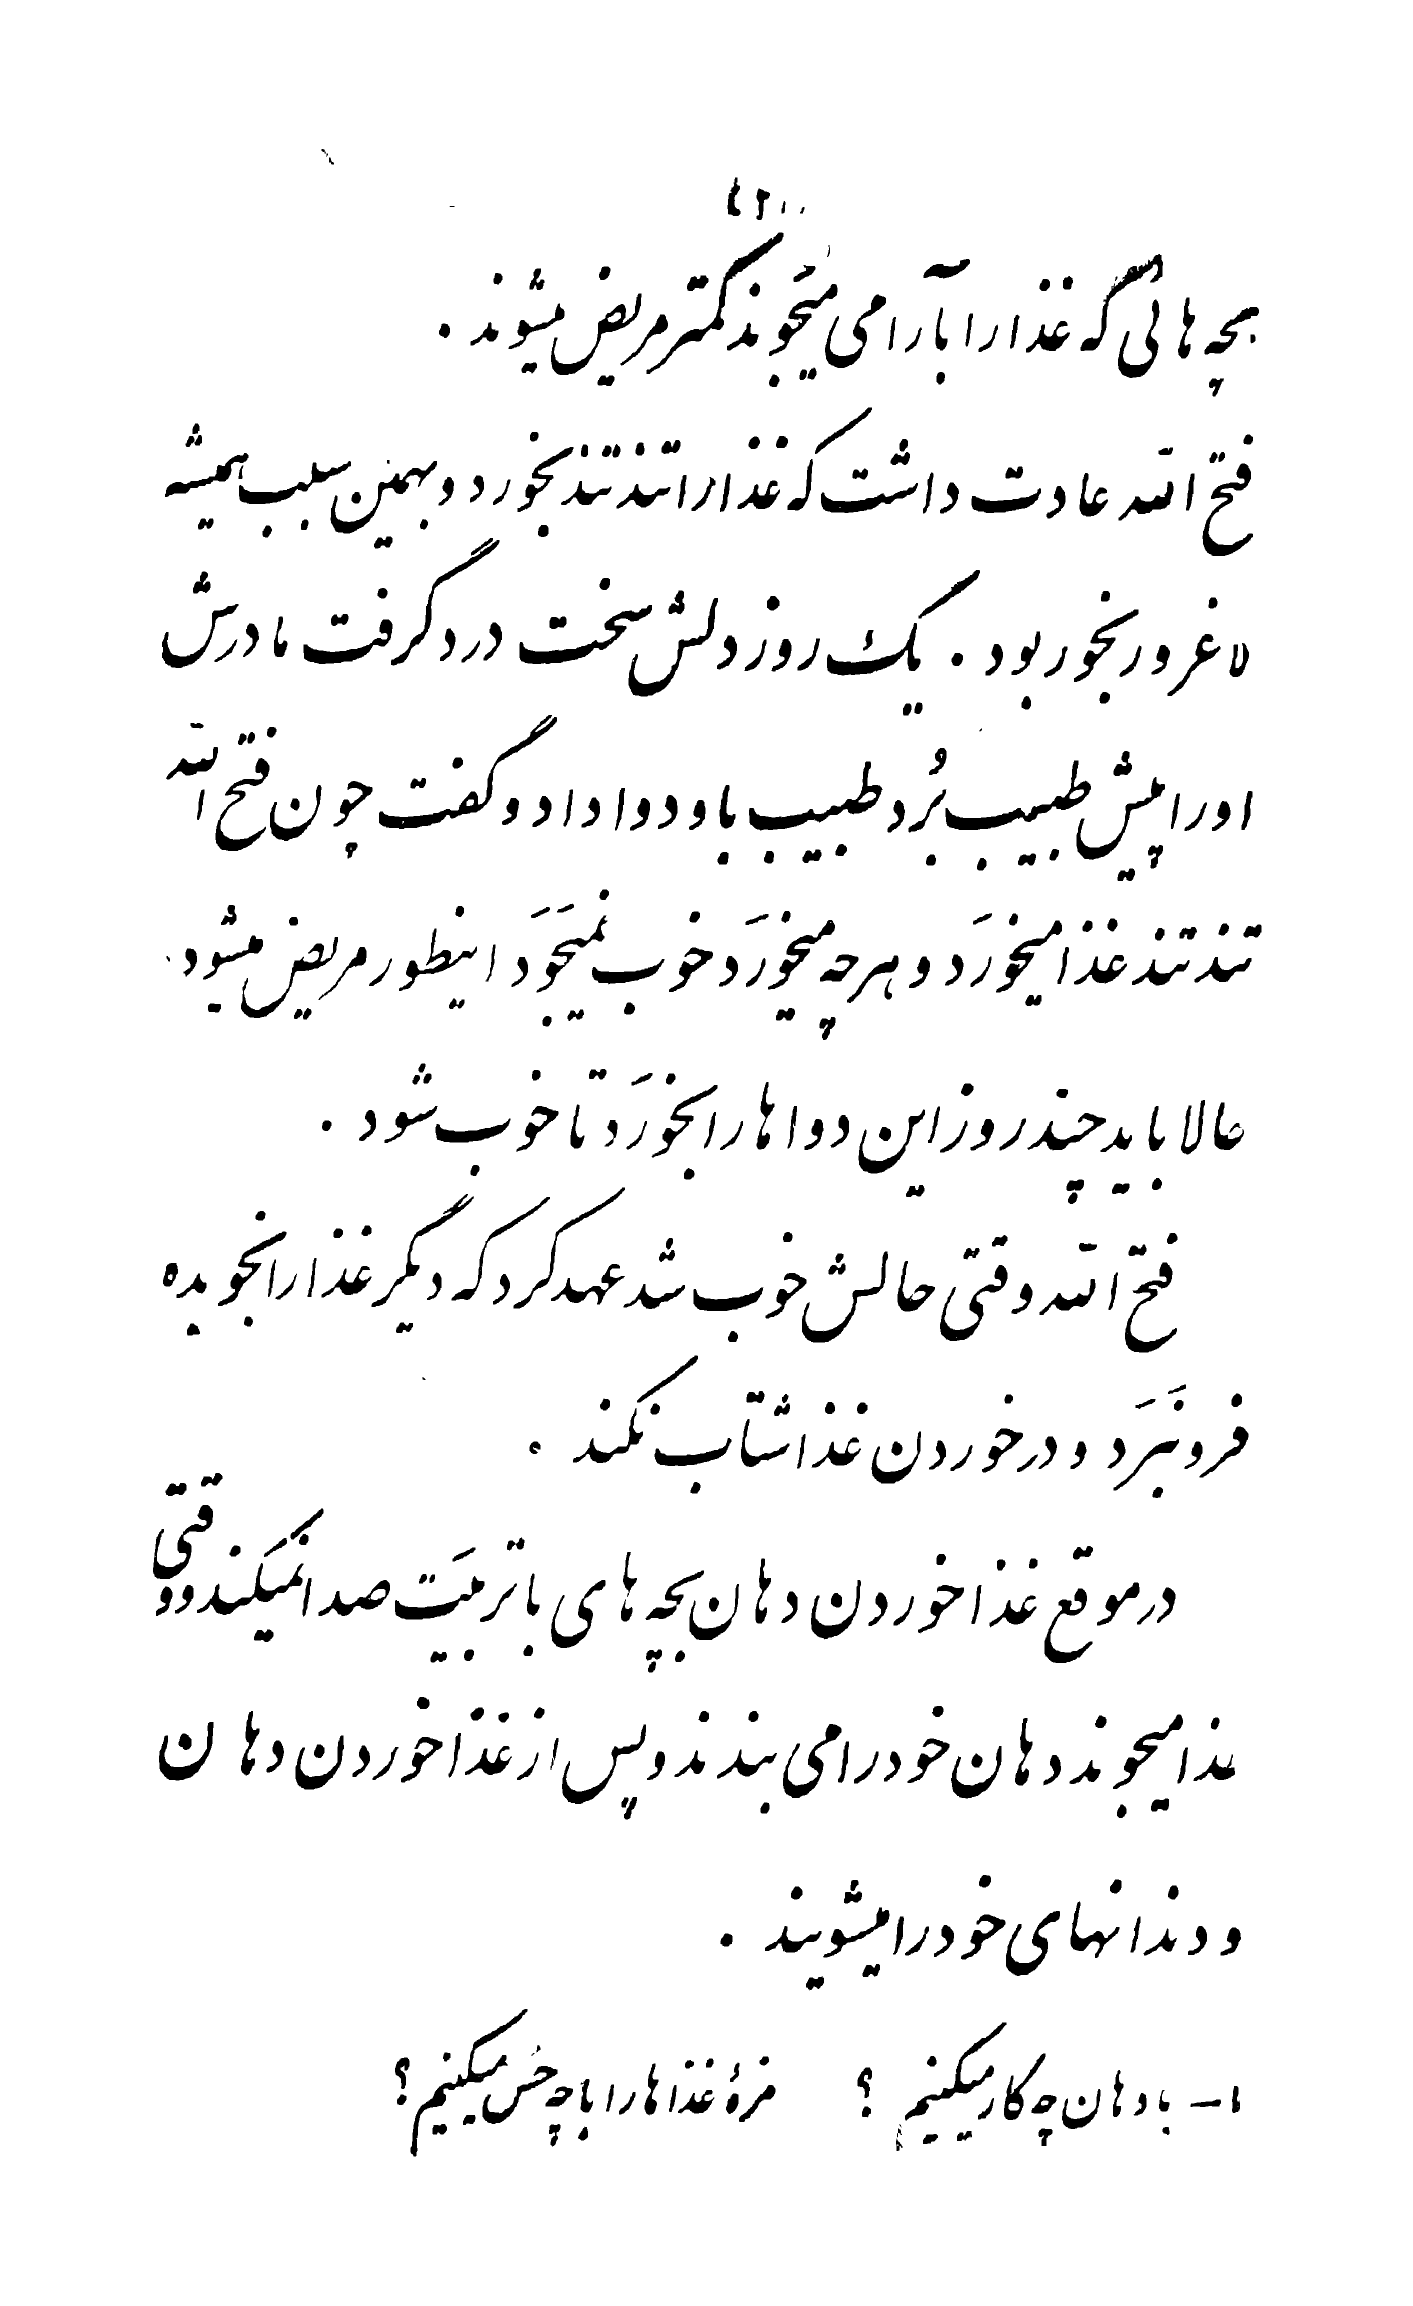 بچه هائی که غذا را بآرامی میجَوند کمتر مریض میشوند .
فتح الله عادت داشت که غذا را تند تند بخورد و بهمین سبب همیشه
لاغر و رنجور بود . یک روز دلش سخت درد گرفت مادرش
او را پیش طبیب بُرد طبیب باو دوا داد و گفت چون فتح الله
تند تند غذا میخورَد و هرچه میخورَد خوب نمیجَوَد اینطور مریض میشود .
حالا باید چند روز این دواها را بخورَد تا خوب شود .
فتح الله وقتی حالش خوب شد عهد کرد که دیگر غذا را نجویده
فرو نَبَرَد و در خوردن غذا شتاب نکند .
در موقع غذا خوردن دهان بچه های با تربیَت صدا نمیکَند و وقتی
غذا میجوند دهان خود را می بندند و پس از غذا خوردن دهان
و دندانهای خود را میشویند .
۱ - با دهان چه کار میکنیم ؟ مزهٔ غذاها را با چه حس میکنیم ؟